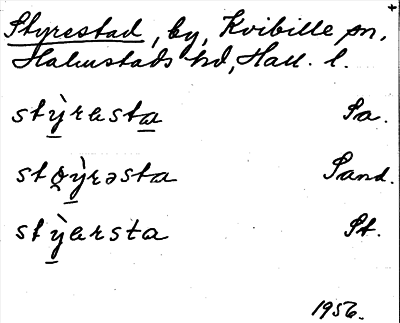 +
Styrestad, by, Kvibille sn,
Halmstads hd, Hall. l.
stỳ̱rasta̱ Sa.
stǫỳ̱rəsta Sand.
stỳ̱arsta St.
1956.